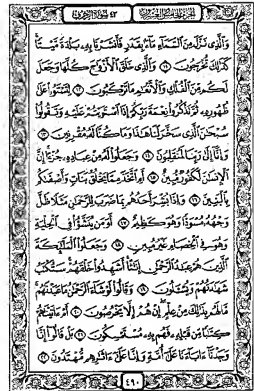 الجزء الخامس والعشرون ٤٣ سورة الزخرف
وَٱلَّذِى نَزَّلَ مِنَ ٱلسَّمَآءِ مَآءًۢ بِقَدَرٍ فَأَنشَرْنَا بِهِۦ بَلْدَةً مَّيْتًا
كَذَٰلِكَ تُخْرَجُونَ ١١ وَٱلَّذِى خَلَقَ ٱلْأَزْوَٰجَ كُلَّهَا وَجَعَلَ
لَكُم مِّنَ ٱلْفُلْكِ وَٱلْأَنْعَٰمِ مَا تَرْكَبُونَ ١٢ لِتَسْتَوُۥا۟ عَلَىٰ
ظُهُورِهِۦ ثُمَّ تَذْكُرُوا۟ نِعْمَةَ رَبِّكُمْ إِذَا ٱسْتَوَيْتُمْ عَلَيْهِ وَتَقُولُوا۟
سُبْحَٰنَ ٱلَّذِى سَخَّرَ لَنَا هَٰذَا وَمَا كُنَّا لَهُۥ مُقْرِنِينَ ١٣
وَإِنَّآ إِلَىٰ رَبِّنَا لَمُنقَلِبُونَ ١٤ وَجَعَلُوا۟ لَهُۥ مِنْ عِبَادِهِۦ جُزْءًا إِنَّ
ٱلْإِنسَٰنَ لَكَفُورٌ مُّبِينٌ ١٥ أَمِ ٱتَّخَذَ مِمَّا يَخْلُقُ بَنَاتٍ وَأَصْفَىٰكُم
بِٱلْبَنِينَ ١٦ وَإِذَا بُشِّرَ أَحَدُهُم بِمَا ضَرَبَ لِلرَّحْمَٰنِ مَثَلًا ظَلَّ
وَجْهُهُۥ مُسْوَدًّا وَهُوَ كَظِيمٌ ١٧ أَوَمَن يُنَشَّؤُا۟ فِى ٱلْحِلْيَةِ
وَهُوَ فِى ٱلْخِصَامِ غَيْرُ مُبِينٍ ١٨ وَجَعَلُوا۟ ٱلْمَلَٰٓئِكَةَ
ٱلَّذِينَ هُمْ عِبَٰدُ ٱلرَّحْمَٰنِ إِنَٰثًا أَشَهِدُوا۟ خَلْقَهُمْ سَتُكْتَبُ
شَهَٰدَتُهُمْ وَيُسْـَٔلُونَ ١٩ وَقَالُوا۟ لَوْ شَآءَ ٱلرَّحْمَٰنُ مَا عَبَدْنَٰهُم
مَّا لَهُم بِذَٰلِكَ مِنْ عِلْمٍ إِنْ هُمْ إِلَّا يَخْرُصُونَ ٢٠ أَمْ ءَاتَيْنَٰهُمْ
كِتَٰبًا مِّن قَبْلِهِۦ فَهُم بِهِۦ مُسْتَمْسِكُونَ ٢١ بَلْ قَالُوٓا۟ إِنَّا
وَجَدْنَآ ءَابَآءَنَا عَلَىٰٓ أُمَّةٍ وَإِنَّا عَلَىٰٓ ءَاثَٰرِهِم مُّهْتَدُونَ ٢٢
٤٩٠